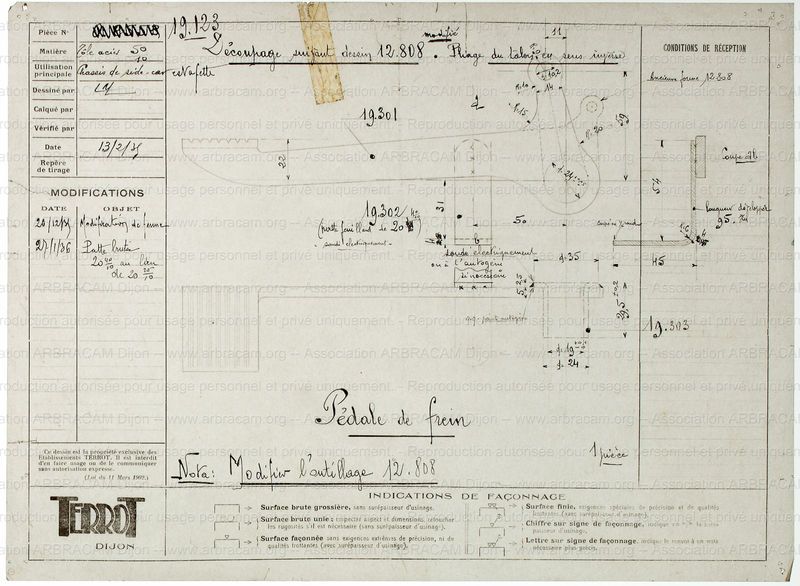 Pièce N°
19.123
Matière
Tôle acier 50/10
Utilisation principale
Chassis de side-car estafette
Dessiné par
Calqué par
Vérifié par
Date
13/2/35
Repère de tirage
MODIFICATIONS
DATE OBJET
20/12/35 Modification de forme
27/1/36 Patte brute
20 40/10 au lieu
de 20 20/10
Découpage suivant dessin 12.808. Pliage du talon en sens inverse
modifié
CONDITIONS DE RÉCEPTION
Ancienne forme 12.808
11
14
R.15
R.20
59
19.301
22
19.302
(patte feuillard de 20
soudé électriquement
31
50
soudé électriquement
ou à l'autogène
si nécessaire
d.35
5.25
29,5
d.19
d.24
Coupe ab
54
longueur développée
95.
45
19.303
Pédale de frein
1 pièce
Nota: Modifier l'outillage 12.808
Ce dessin est la propriété exclusive des
Etablissements TERROT. Il est interdit
d'en faire usage ou de le communiquer
sans autorisation expresse.
(Loi du 11 Mars 1902.)
TERROT
DIJON
INDICATIONS DE FAÇONNAGE
Surface brute grossière, sans surépaisseur d'usinage.
Surface brute unie : respecter aspect et dimensions, retoucher
les rugosités s'il est nécessaire (sans surépaisseur d'usinage).
Surface façonnée sans exigences extrêmes de précision, ni de
qualités frottantes (avec surépaisseur d'usinage).
Surface finie, exigences spéciales de précision et de qualités
frottantes (avec surépaisseur d'usinage).
Chiffre sur signe de façonnage,
Lettre sur signe de façonnage, indique le renvoi à un texte
nécessaire plus précis.
www.arbracam.org -- Association ARBRACAM Dijon -- Reproduction autorisée pour usage personnel et privé uniquement.